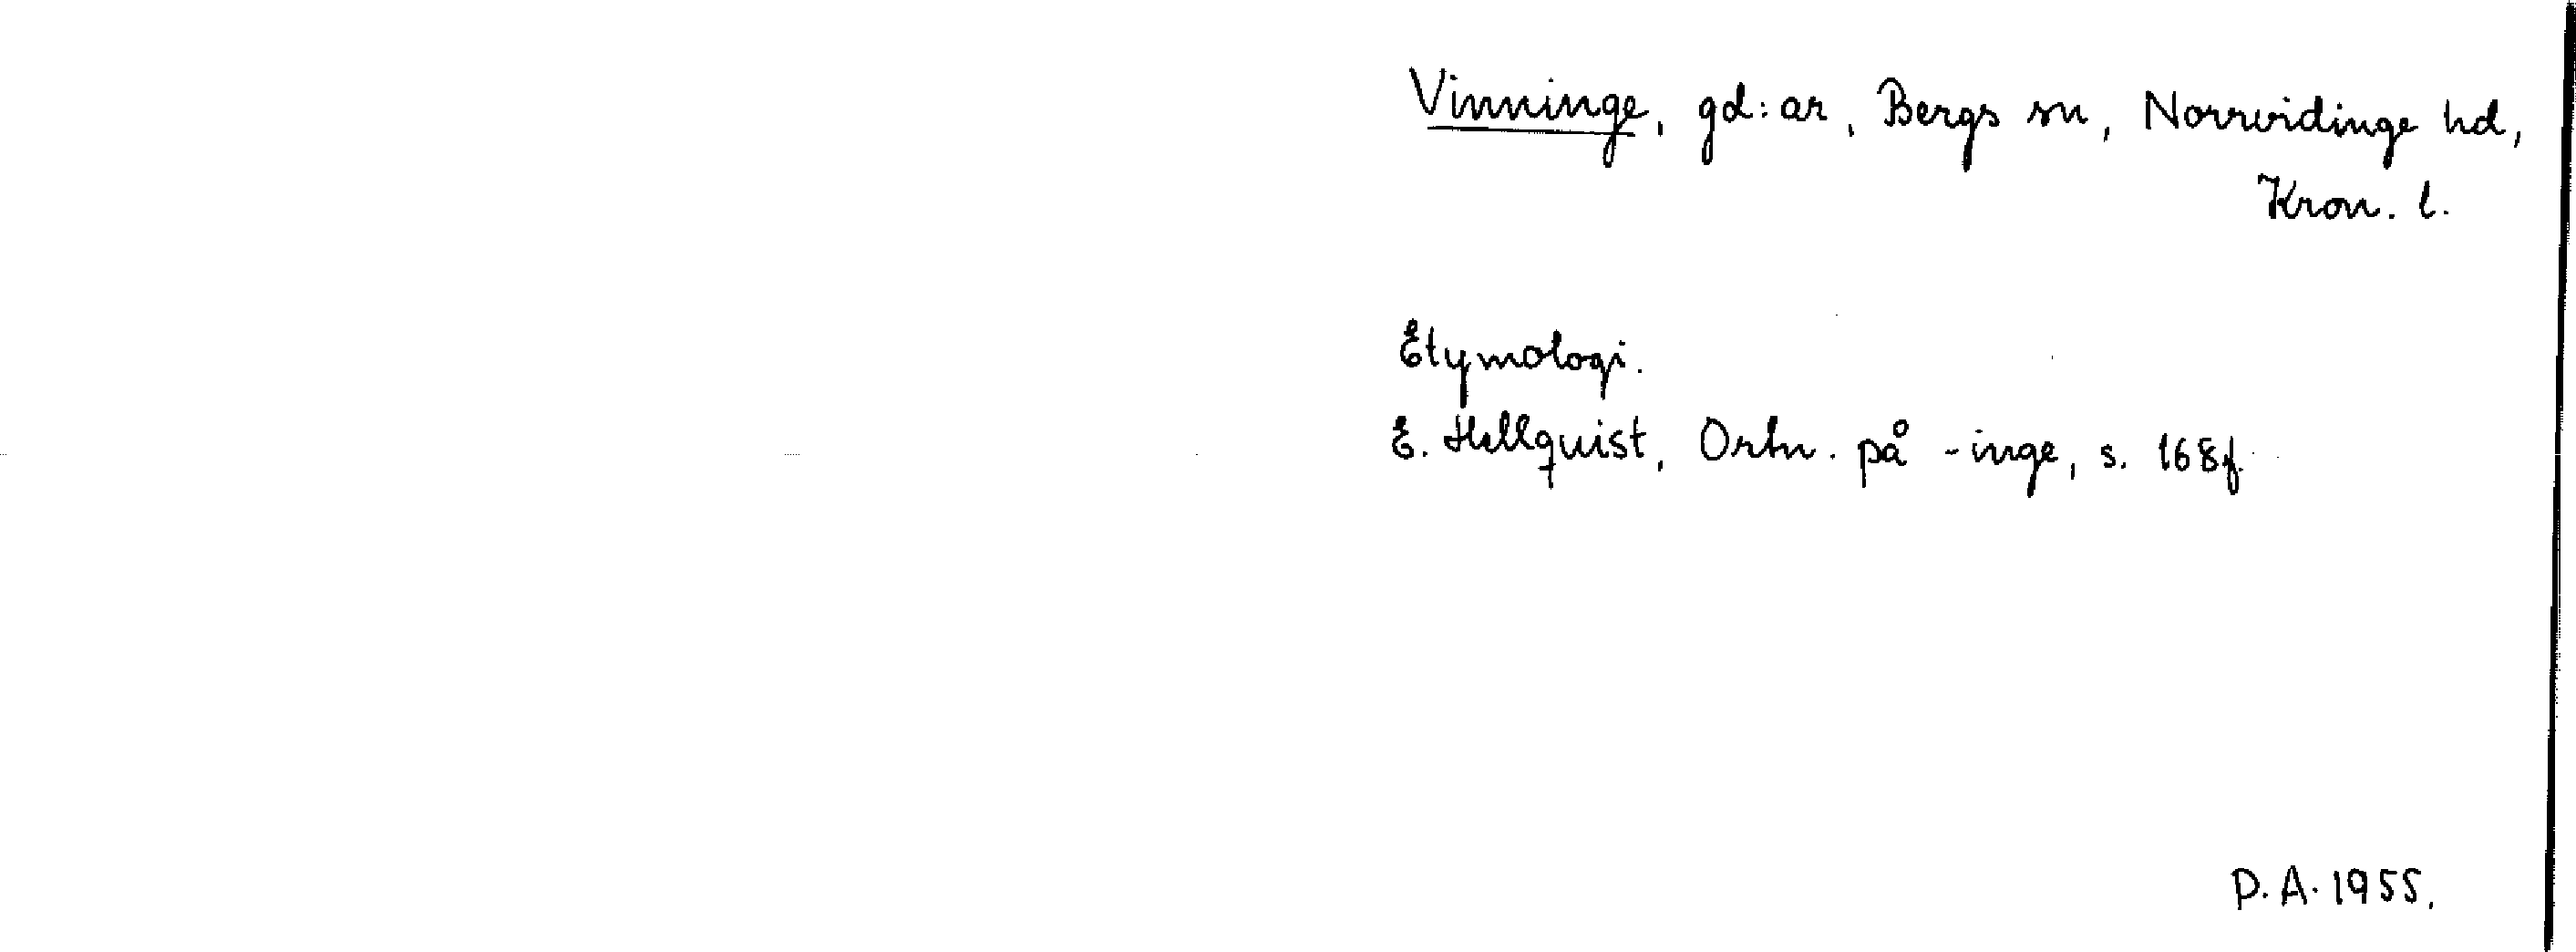 Vinninge, gd:ar, Bergs sn, Norrvidinge hd,
Kron. l.
Etymologi.
E. Hellquist, Ortn. på -inge, s. 168f.
P.A. 1955.